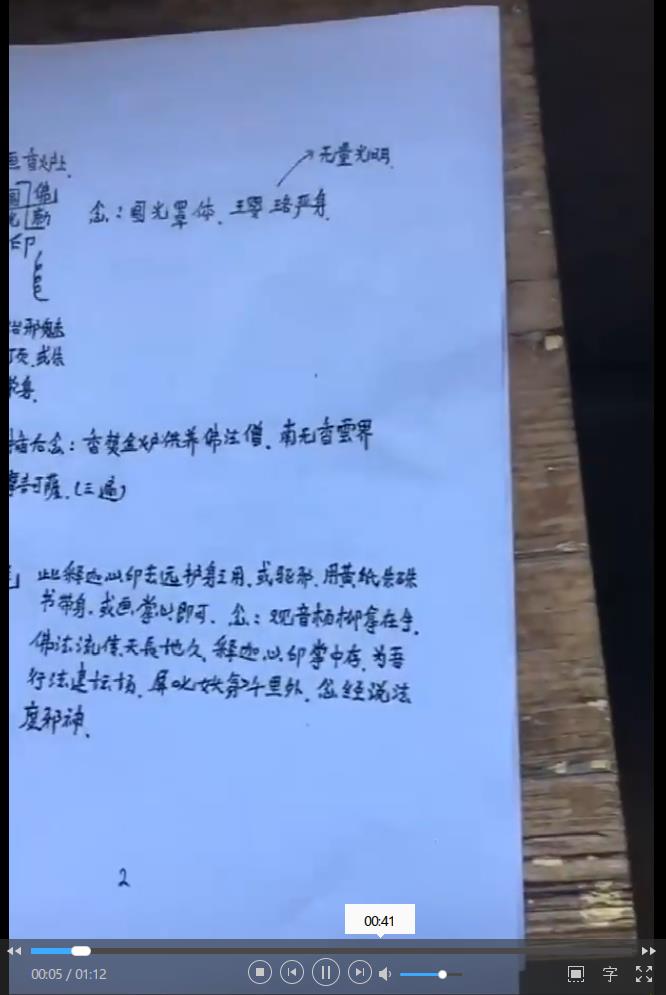 画香炉上
无量光明
圆 佛
光 勅
印
念:圆光罩体、王婴珞严身
治邪魅
顶、或佉
念:香焚金炉供养佛法僧、南无香雲界
摩诃萨、(三遍)
此释迦心印去远护身主用、或驱邪、用黄纸朱硃
书带身、或画掌心即可、念:观音杨柳拿在手、
佛法流传天長地久、释迦心印掌中存、为吾
行法建坛场、屏叱妖氛千里外、念经说法
度邪神、
2
00:41
00:05 / 01:12
字